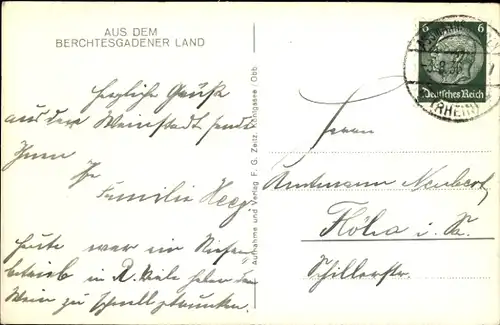 AUS DEM
BERCHTESGADENER LAND
Herzliche Grüße
aus dem Weinstadt sendet
Ihnen Ihr
Familie Heeg
Heute war ein Riesen
betrieb in R. Viele haben den
Wein zu schnell getrunken.
Aufnahme und Verlag F. G. Zeitz, Königssee/Obb.
6 6
Deutsches Reich
(RHEIN)
Herrn
Amtmann Neubert
Flöha i. Sa.
Schillerstr.